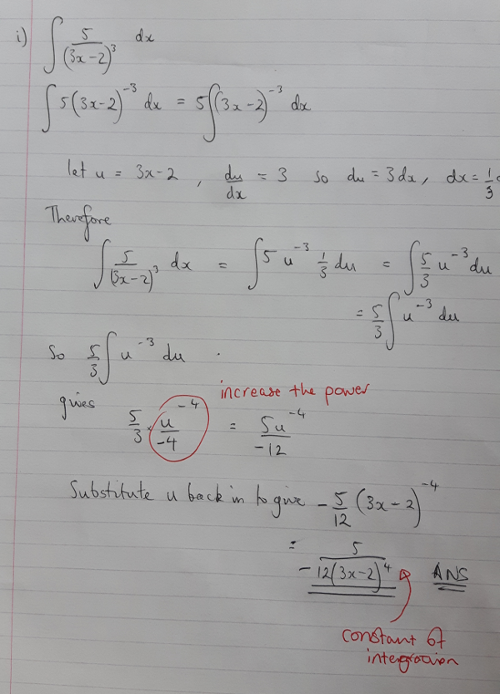 i) ∫ 5/(3x-2)³ dx
∫ 5(3x-2)⁻³ dx = 5∫(3x-2)⁻³ dx
let u = 3x-2 , du/dx = 3 so du = 3dx, dx = 1/3
Therefore
∫ 5/(3x-2)³ dx = ∫ 5 u⁻³ 1/3 du = ∫ 5/3 u⁻³ du
= 5/3 ∫ u⁻³ du
So 5/3 ∫ u⁻³ du .
increase the power
gives 5/3 · u⁻⁴/-4 = 5u⁻⁴/-12
Substitute u back in to give - 5/12 (3x-2)⁻⁴
= 5/-12(3x-2)⁴ ANS
constant of
integration